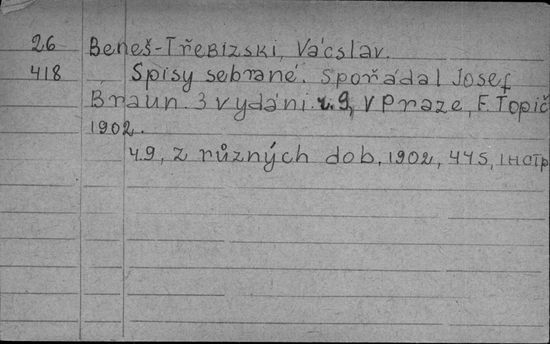 26 Beneš-Třebizski, Vácslav.
418 Spisy sebrané. Spořádal Josef
Braun. 3 vydáni. č. 9, V Praze, F. Topič
1902.
č. 9, z různých dob, 1902, 445, 1 ност р